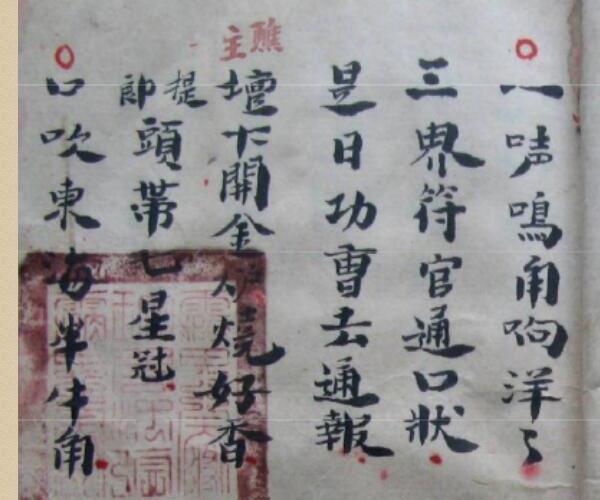 一声鳴角响洋々
三界符官通口狀
是日功曹去通報
醮主
壇下開金炉燒好香
提郎頭帶七星冠
口吹東海半牛角